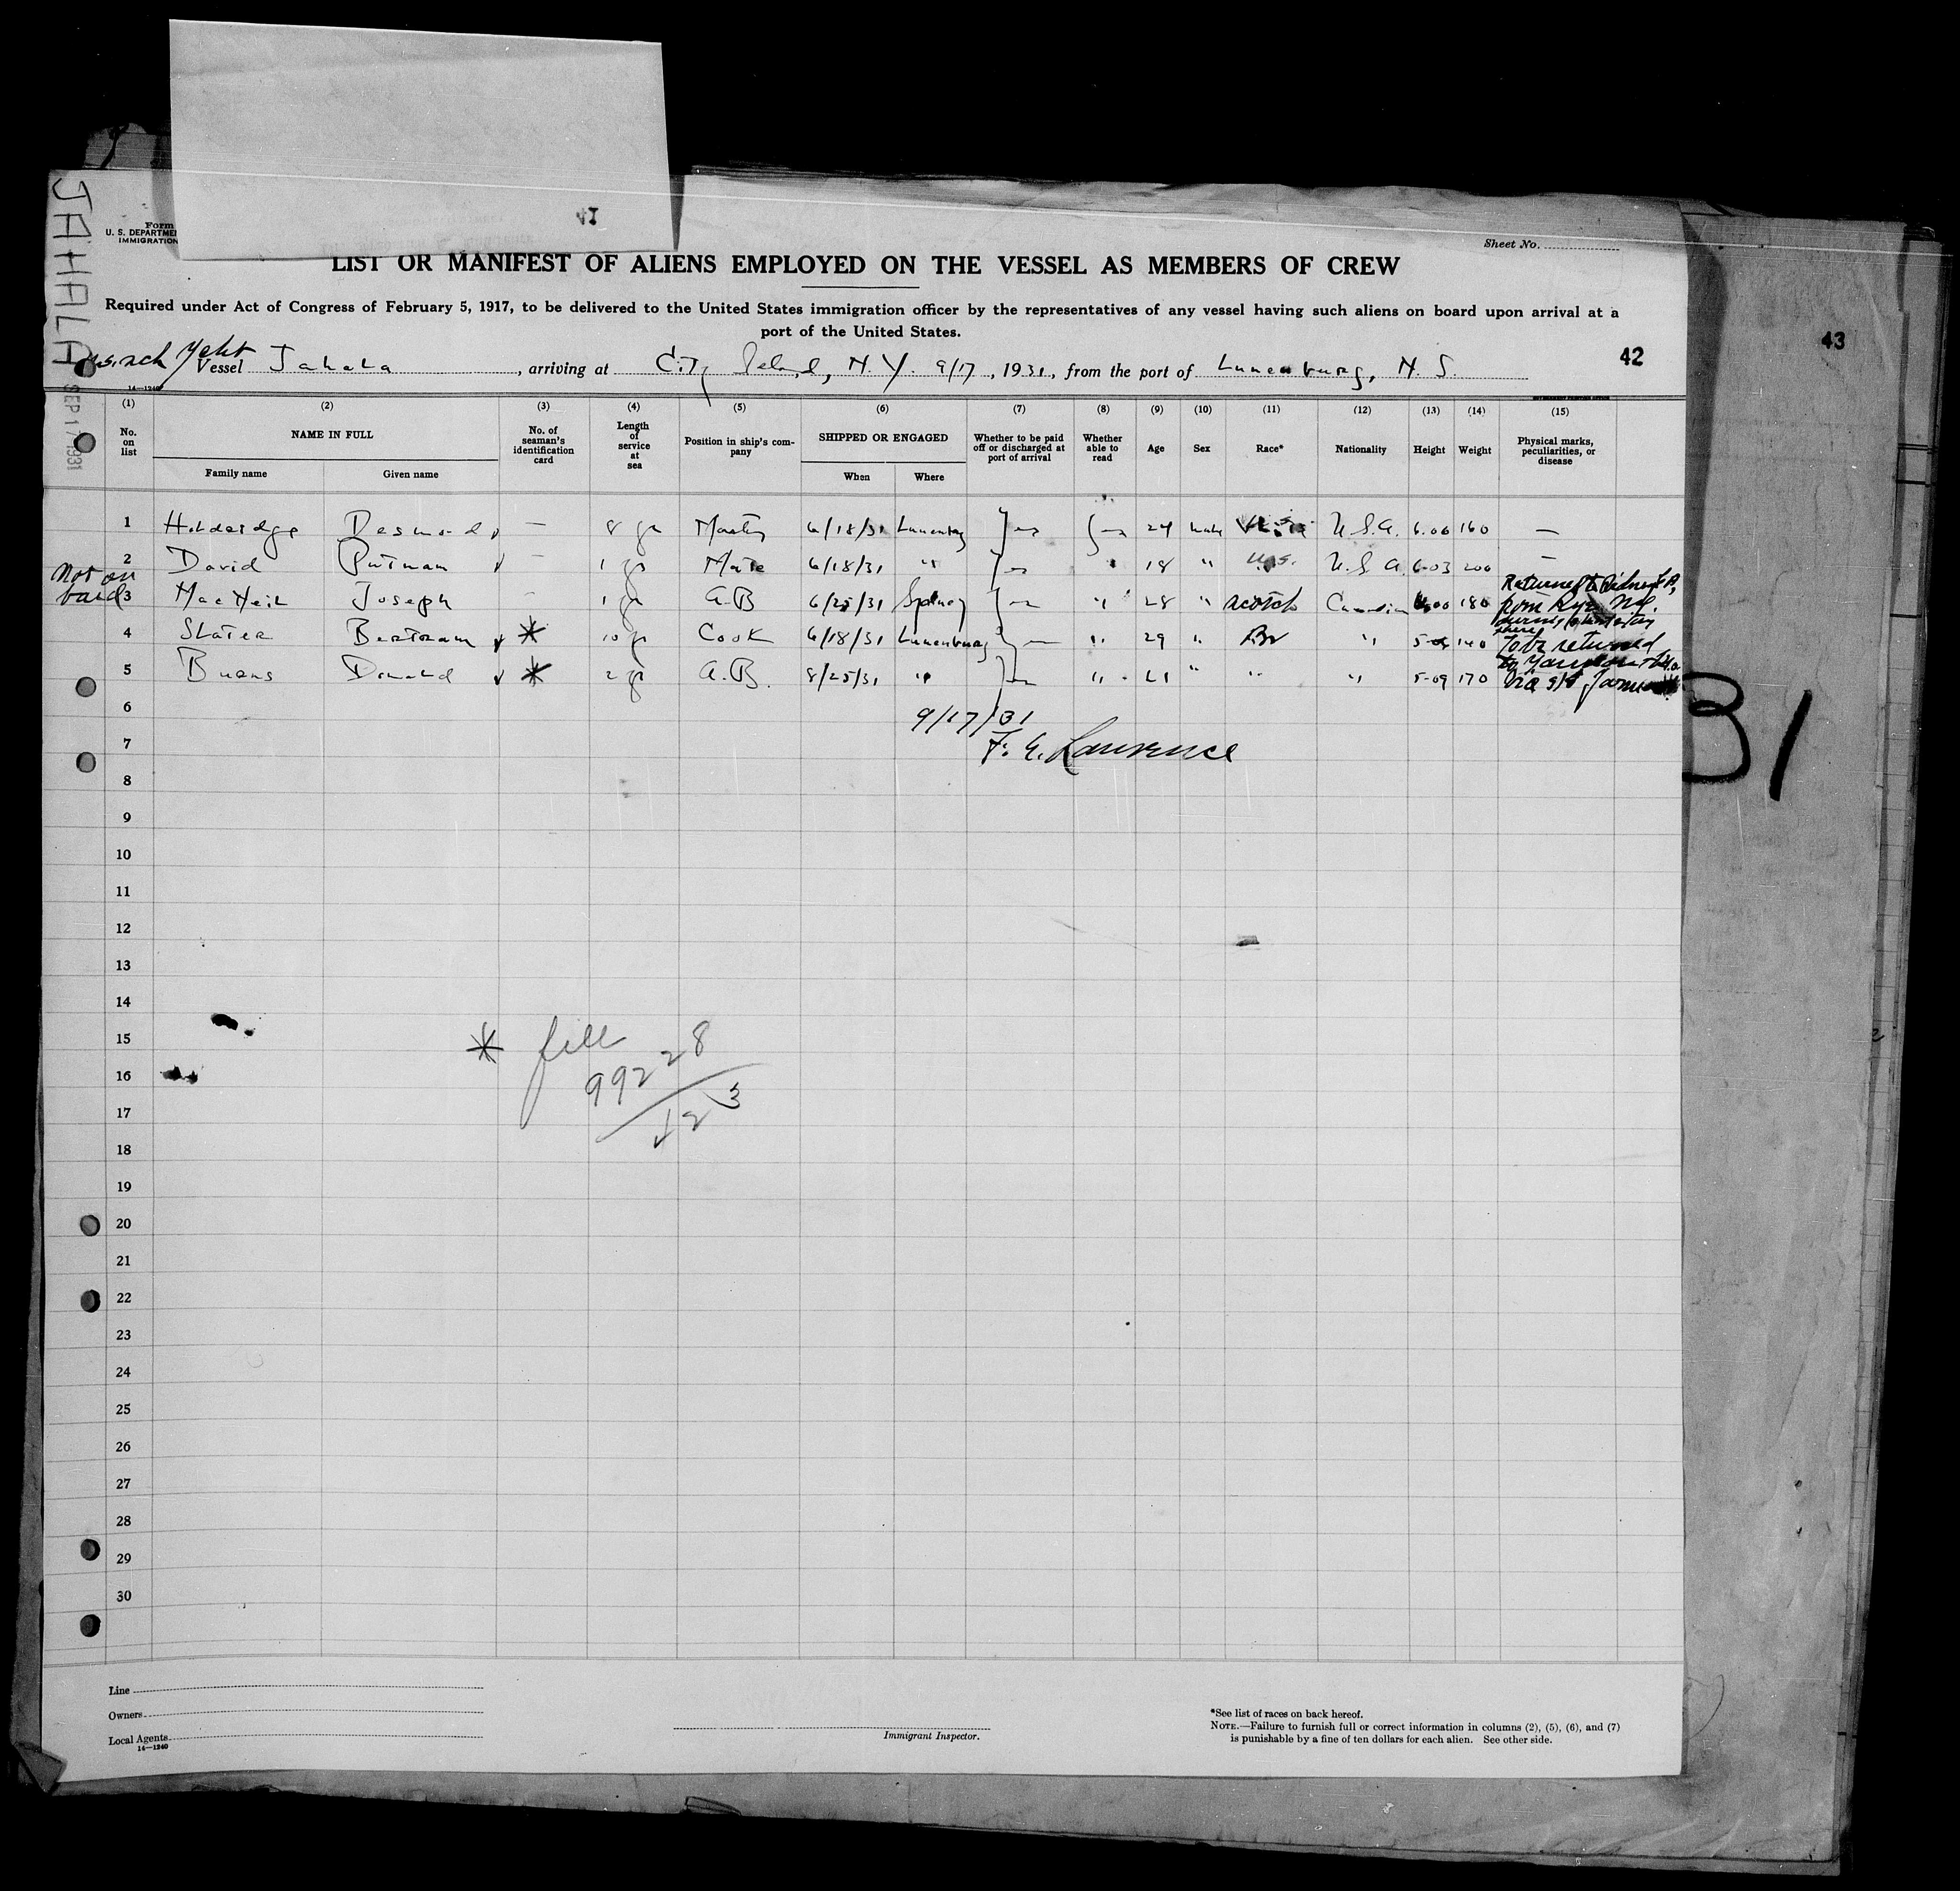 41
JAHALA
SEP 17 1931
Form
U. S. DEPARTME
IMMIGRATION
Sheet No.
LIST OR MANIFEST OF ALIENS EMPLOYED ON THE VESSEL AS MEMBERS OF CREW
Required under Act of Congress of February 5, 1917, to be delivered to the United States immigration officer by the representatives of any vessel having such aliens on board upon arrival at a
port of the United States.
Vessel Jahala, arriving at City Island, N. Y. 9/17, 1931, from the port of Lunenburg, N. S.
42
43
14—1240
(1) (2) (3) (4) (5) (6) (7) (8) (9) (10) (11) (12) (13) (14) (15)
No. on list
NAME IN FULL
Family name Given name
No. of seaman's identification card
Length of service at sea
Position in ship's company
SHIPPED OR ENGAGED
When Where
Whether to be paid off or discharged at port of arrival
Whether able to read
Age Sex Race* Nationality Height Weight
Physical marks, peculiarities, or disease
1 Holdridge Desmond — 8 yr Master 6/18/31 Lunenburg 24 male U.S.A. 6.00 160 —
2 David Putnam — 1 yr Mate 6/18/31 " " 18 " U.S. U.S.A. 6-03 200 —
Not on board
3 MacNeil Joseph — 1 yr A.B 6/25/31 Sydney " 28 " Scotch Canadian 180
4 Slater Bertram * 10 yr Cook 6/18/31 Lunenburg " 29 " Br " 140 To be returned
5 Burns Donald * 2 yr A.B. 8/25/31 " " 21 " " " 5-09 170
6
9/17/31
7
F. E. Lawrence
8
9
10
11
12
13
14
15
16
17
18
19
20
21
22
23
24
25
26
27
28
29
30
* file
99228
/523
31
Line
Owners
Local Agents
14—1240
Immigrant Inspector.
*See list of races on back hereof.
NOTE.—Failure to furnish full or correct information in columns (2), (5), (6), and (7)
is punishable by a fine of ten dollars for each alien. See other side.